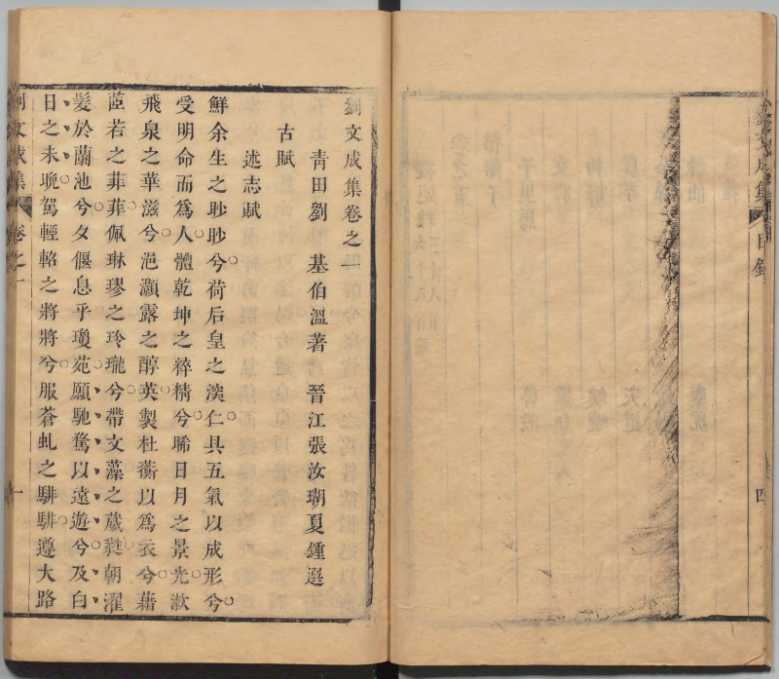 劉文成集
目錄
四
劉文成集卷之一
青田劉 基伯溫著 晉江張汝瑚夏鍾選
古賦
述志賦
鮮余生之眇眇兮荷后皇之渼仁具五氣以成形兮
受明命而爲人體乾坤之粹精兮晞日月之景光歃
飛泉之華滋兮浥灝露之醇英製杜蘅以爲衣兮藉
茝若之菲菲佩琳璆之玲瓏兮帶文藻之葳蕤朝濯
髮於蘭池兮夕偃息乎瓊苑願馳騖以遠遊兮及白
日之未晚駕輕輅之將將兮服蒼虬之騑騑遵大路
劉文成集
卷之一
一